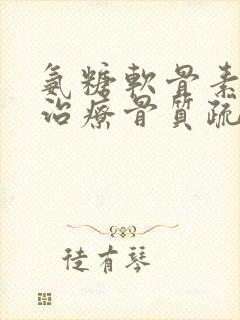 氨糖軟骨素
治療骨質疏
徒有琴